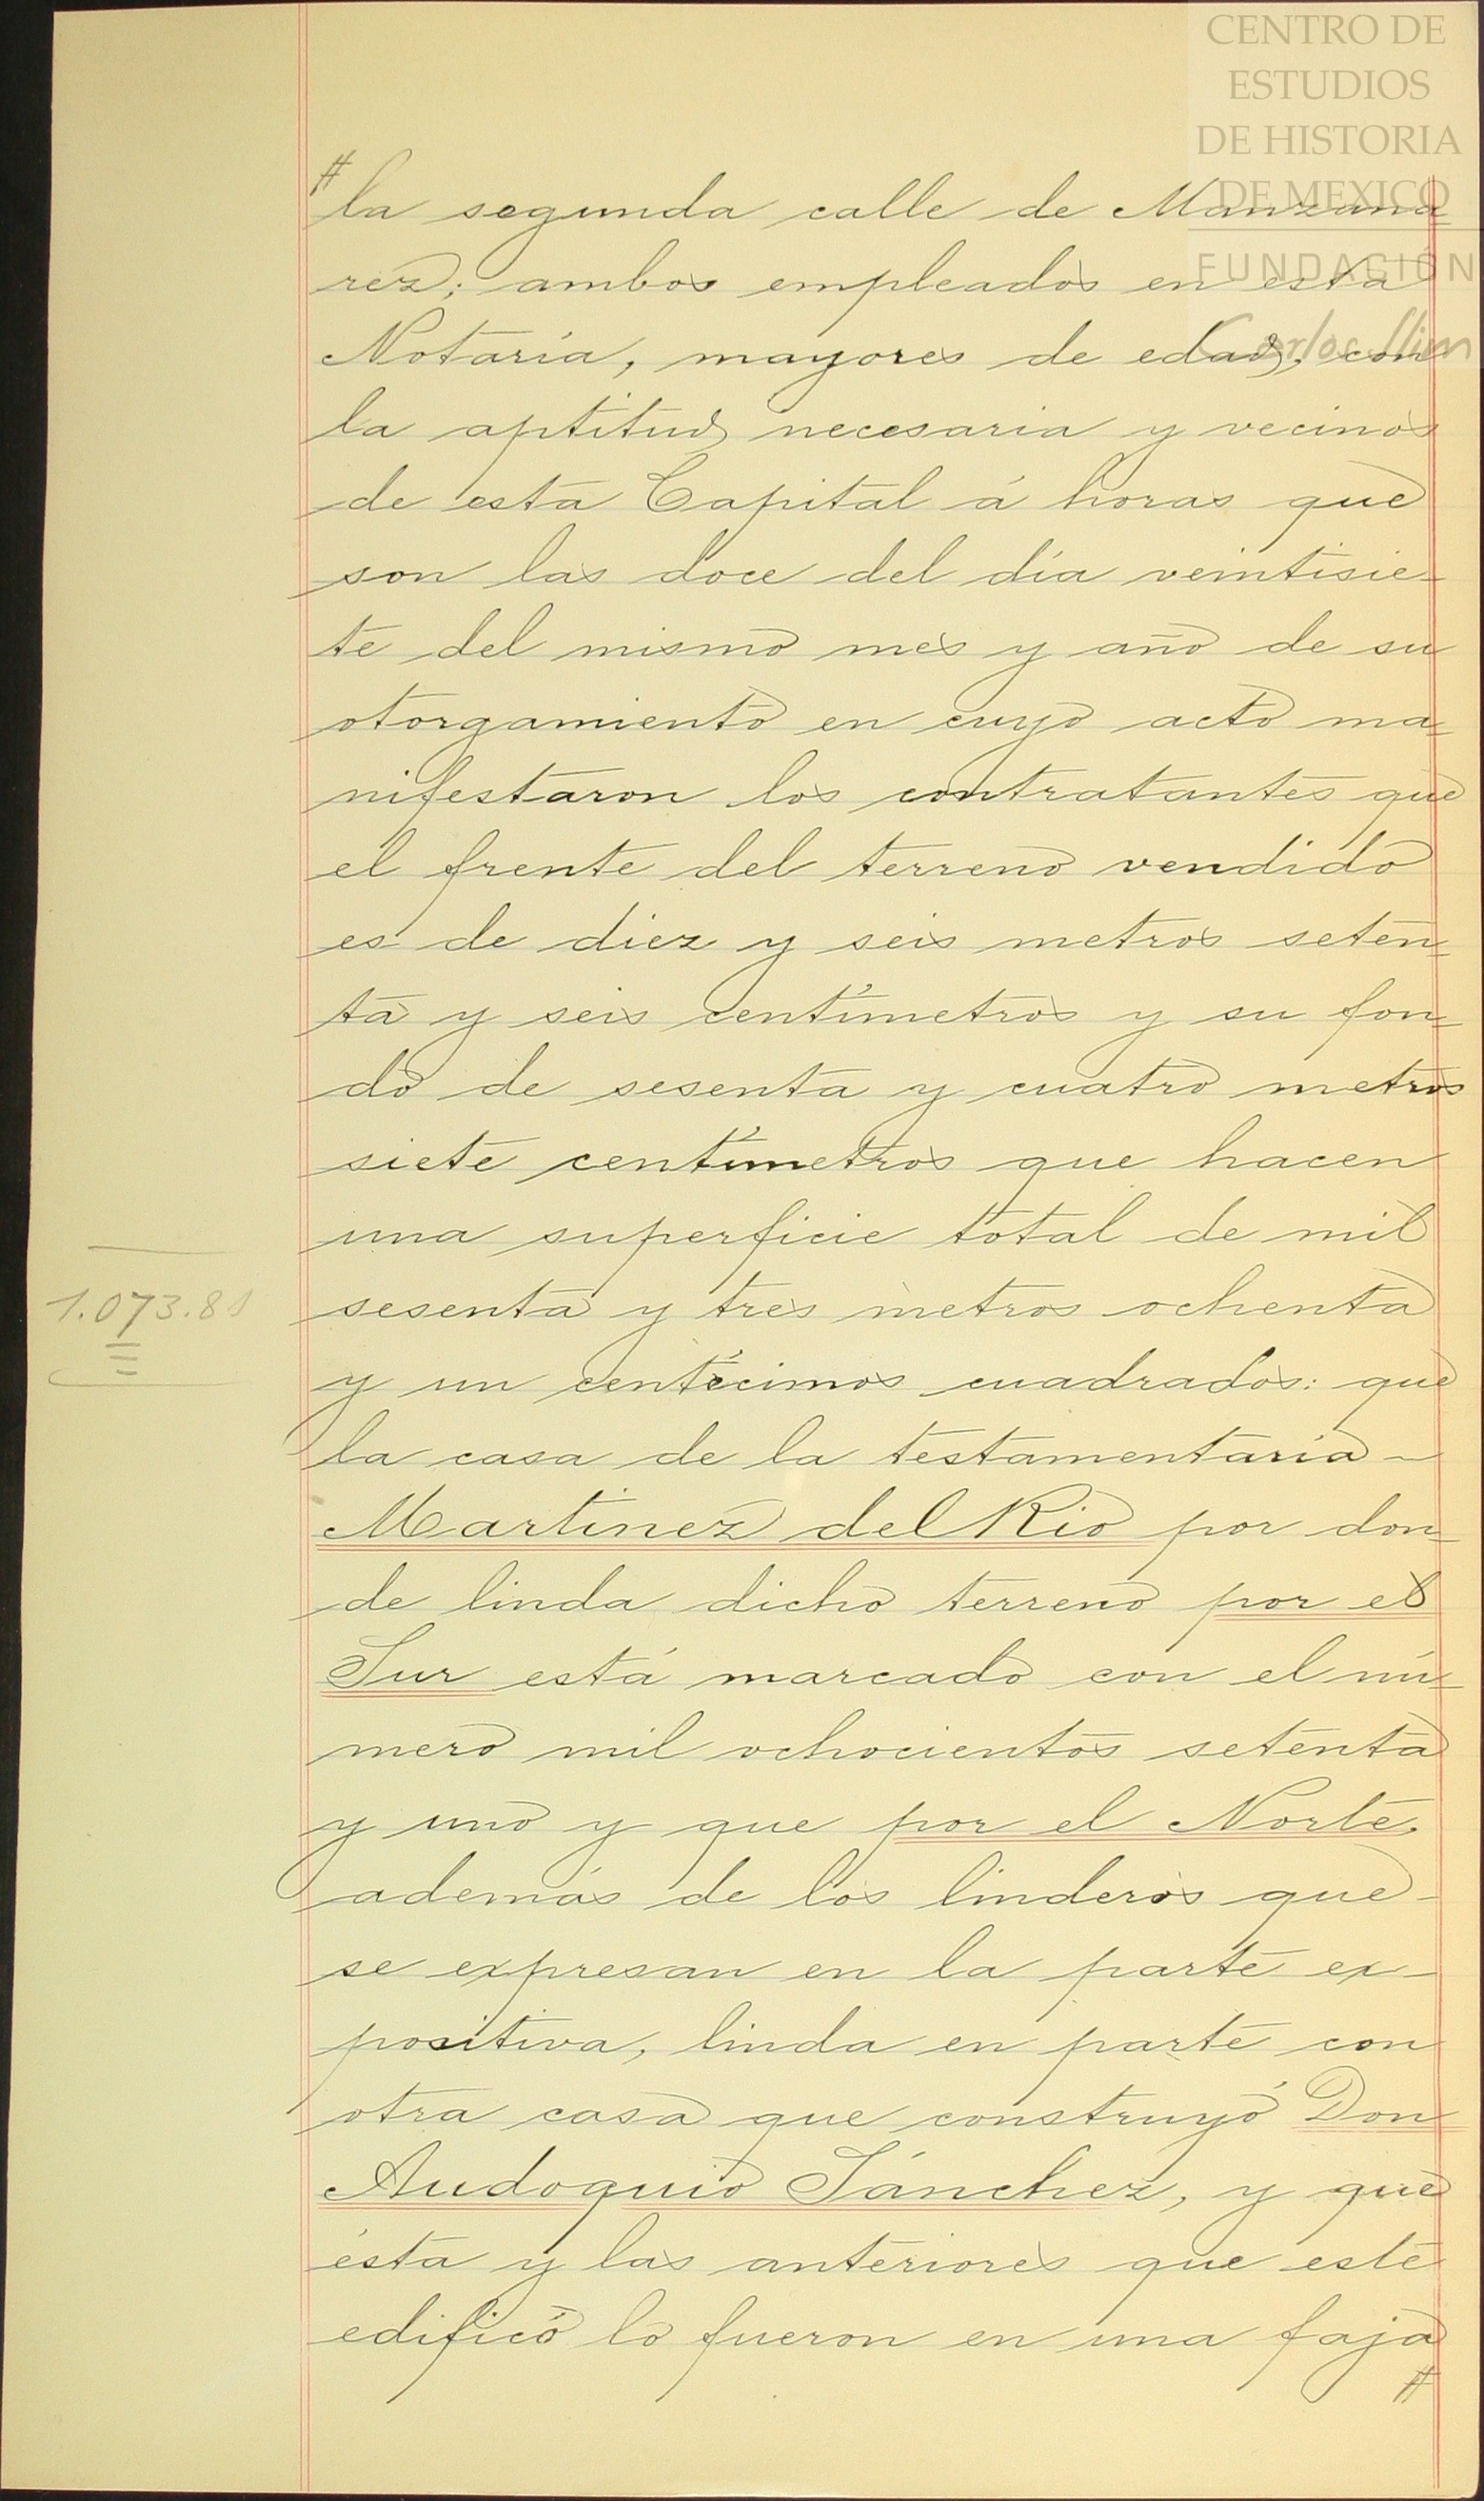 CENTRO DE
ESTUDIOS
DE HISTORIA
DE MEXICO
FUNDACIÓN
Carlos Slim
# la segunda calle de Manzana
rez; ambos empleados en esta
Notaría, mayores de edad, con
la aptitud necesaria y vecinos
de esta Capital á horas que
son las doce del día veintisie-
te del mismo mes y año de su
otorgamiento en cuyo acto ma-
nifestaron los contratantes que
el frente del terreno vendido
es de diez y seis metros seten-
ta y seis centímetros y su fon-
do de sesenta y cuatro metros
siete centímetros que hacen
una superficie total de mil
1.073.81
sesenta y tres metros ochenta
y un centécimos cuadrados: que
la casa de la testamentaría -
Martinez del Rio por don-
de linda dicho terreno por el
Sur está marcado con el nú-
mero mil ochocientos setenta
y uno y que por el Norte,
además de los linderos que-
se expresan en la parte ex-
positiva, linda en parte con
otra casa que construyó Don
Audoquio Sánchez, y que
ésta y las anteriores que este
edificó lo fueron en una faja
#